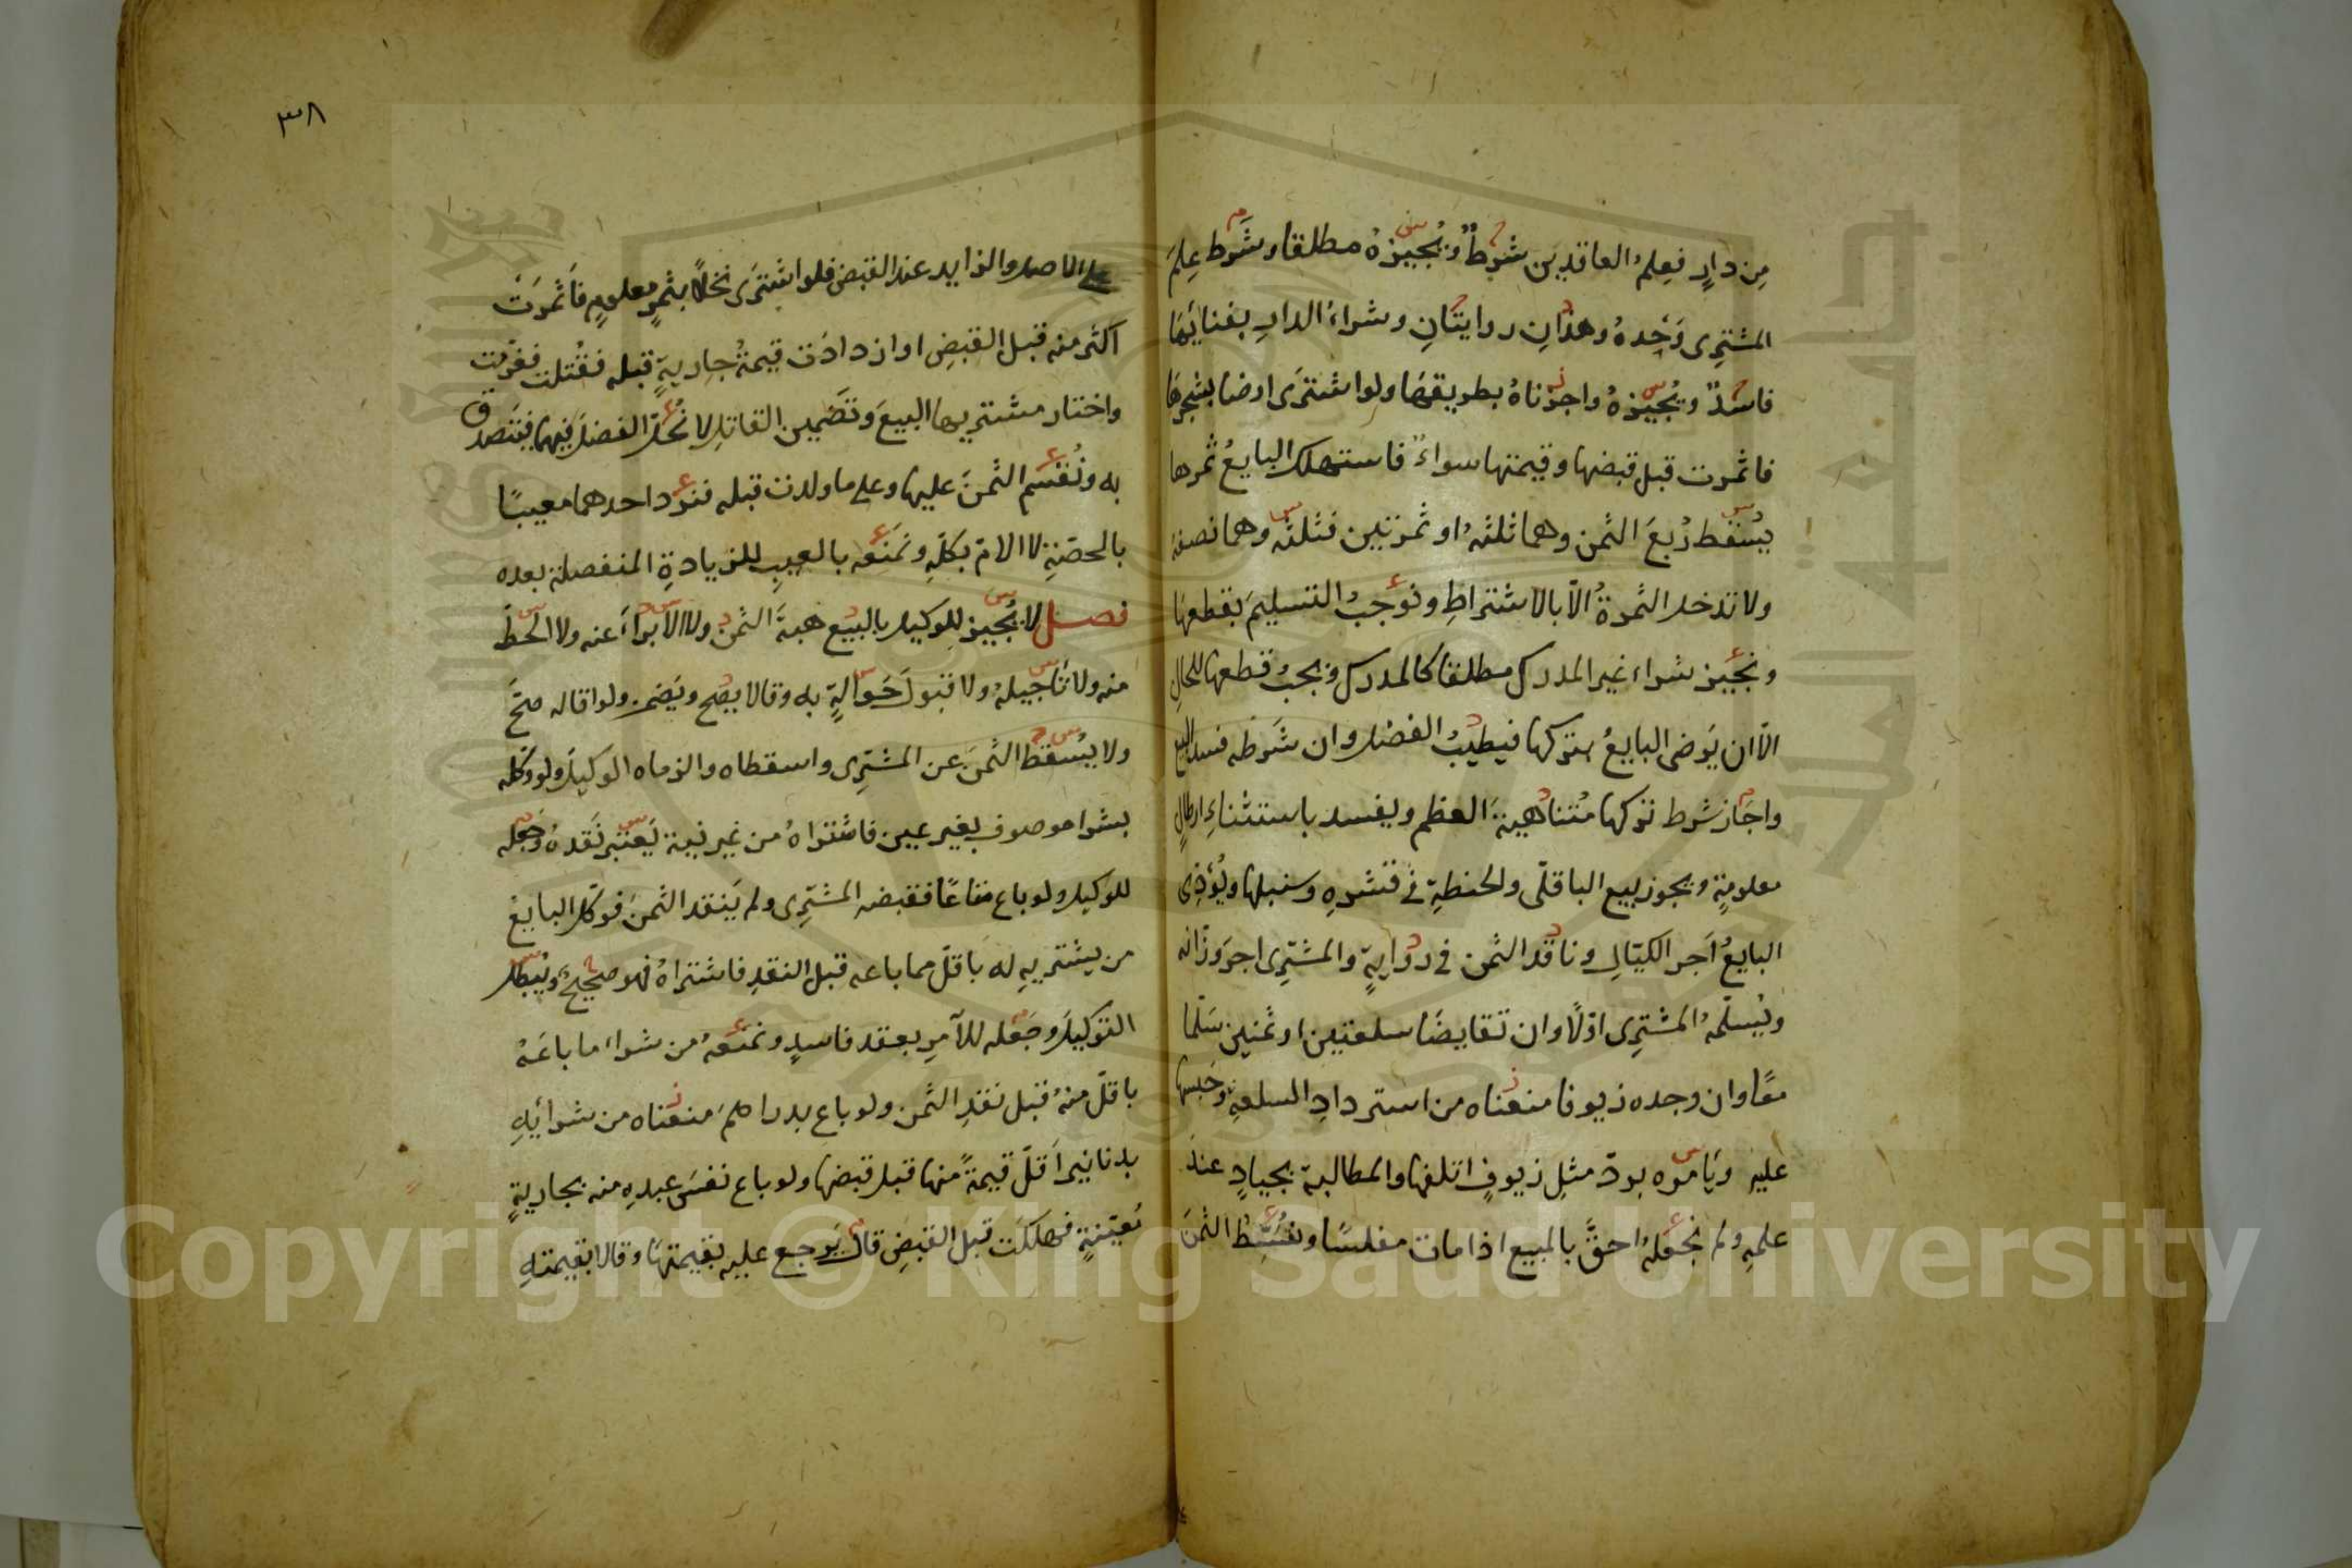 مِن دارٍ فعِلمُ العاقدين شَرطٌ ويُجيزهُ مطلقا وشَرط عِلمَ
المشترِى وَحْدهُ وهذانِ روايتَانِ وشراءُ الدارِ بفنائِهَا
فاسدٌ ويُجيزهُ واجزناهُ بطريقهَا ولو اشترَى ارضا بشجرهَا
فاثمرت قبل قبضها وقيمتها سواءٌ فاستهلك البايعُ ثمرها
يُسْقط رُبعَ الثمن وهما ثلثهُ او ثمرتين فثلثه وهما نصفه
ولا تدخل الثمرةُ الّا بالاشتراطِ ونوجبُ التسليمَ بقطعهَا
ونجيز شراء غير المدرك مطلقا كالمدرك ويجبُ قطعها للحالِ
الّا ان يَرضى البايعُ بتركها فيطيبُ الفضل وان شَرَطه فسد البيع
واجَاز شرط تركها مُتناهيةَ العظم ويفسد باستثناءِ ارطالٍ
معلومةٍ ويجوز بيع الباقلّى والحنطةِ فى قشرهِ وسنبلها ويُؤدِى
البايعُ اَجر الكيّالِ وناقد الثمن فى روايةٍ والمشترِى اجرَ وزّانه
ويُسلّمهُ المشترِى اوّلًا وان تقايضَا سلعتين او ثمنين سَلّما
معًا وان وجده زيوفا منعناه من استردادِ السلعةِ وحَبسها
عليه ويَامره بردّ مثلِ زيوفٍ اتلفها والمطالبة بجيادٍ عندَ
علمهِ ولم نجعلهُ احقَّ بالمبيع اذا مات مفلسًا ونُقسِّطُ الثمنَ
٣٨
على الاصل والزايد عند القبض فلو اشترَى نخلًا بثمرٍ معلومٍ فاَثمَرَتْ
اكثر منه قبل القبضِ او ازدادَت قيمةُ جاريةٍ قبله فقُتلت فغرّمت
واختار مشتريها البيعَ وتضمين القاتلِ لا نُحلّ الفضلَ فيهما فيتصدق
به ونُقسّم الثمنَ عليها وعلى ما ولدت قبله فنردّ احدهما معيبًا
بالحصّةِ لا الامّ بكلّهِ ونَمنَعه بالعيبِ للزيادةِ المنفصلة بعده
فصل لا يُجيز للوكيل بالبيع هبةَ الثمن ولا الابراءَ عنه ولا الحطَّ
منه ولا تَاجيلهُ ولا قبولَ حَوالةٍ به وقالا يصح ويَضمن ولو اقاله صَحَّ
ولا يُسقط الثمنَ عن المشترِى واسقطاه والزماه الوكيلَ ولو وكّله
بشرا موصوف بغير عين فاشتراهُ من غير نية يَعتبر نَقدهُ وجَعله
للوكيل ولو باع متاعًا فقبضه المشترِى ولم يَنقد الثمنَ فوكّل البايعُ
من يشتريهِ له باقلّ مما باعه قبل النقدِ فاشتراهُ فهو صحيحٌ ويُبطل
التوكيلَ وجَعله للآمرِ بعقد فاسدٍ ونمنعهُ من شراء ما باعَهُ
باقلّ منهُ قبل نقدِ الثمن ولو باع بدراهمَ منعناه من شرائِهِ
بدنانيرَ اَقلّ قيمةً منها قبل قبضها ولو باع نفسَ عبدهِ منه بجاريةٍ
مُعيّنةٍ فهلكَت قبل القبضِ قال يَرجع عليه بقيمتهَا وقالا بقيمتهِ
Copyright © King Saud University